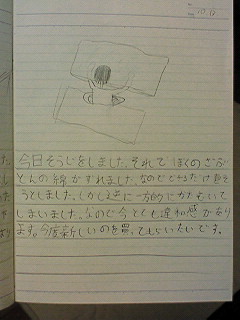 今日そうじをしました。それでぼくのざぶ
とんの綿がずれました。なのでできるだけ直そ
うとしました。しかし逆に一方的にかたむいて
しまいました。なので今とても違和感があり
ます。今度新しいのを買ってもらいたいです。